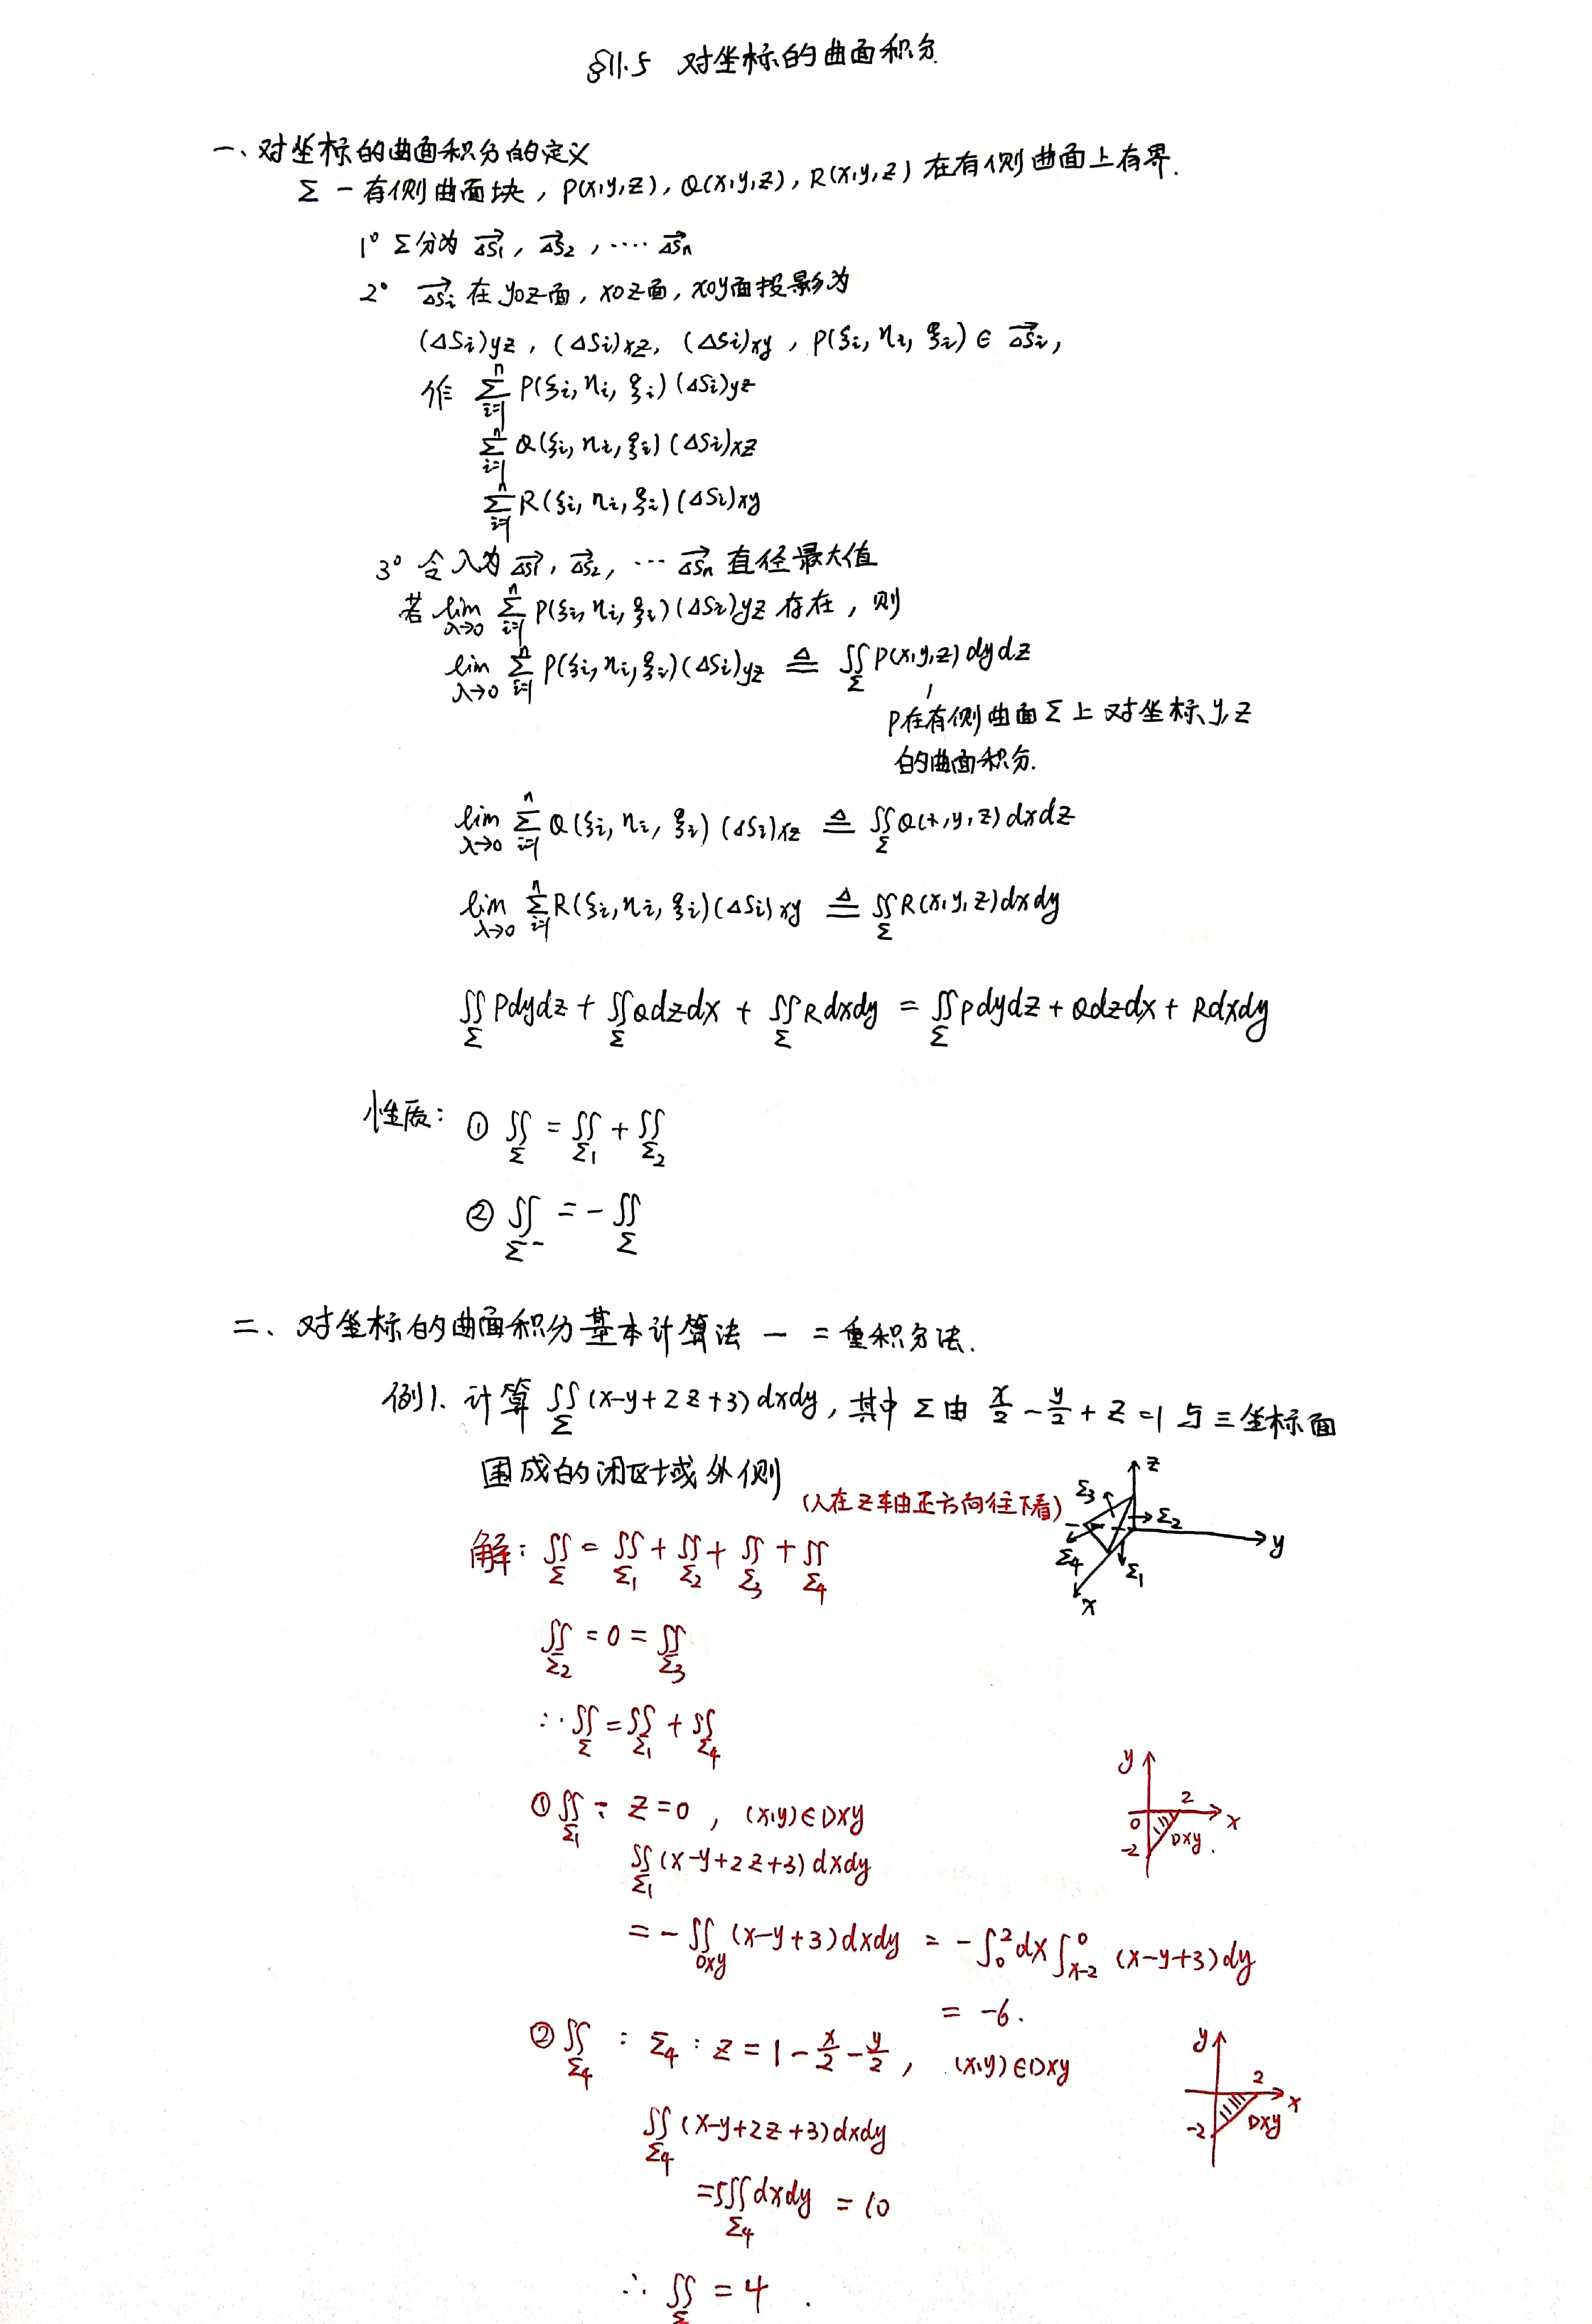 §11.5 对坐标的曲面积分
一、对坐标的曲面积分的定义
Σ — 有侧曲面块，P(x,y,z), Q(x,y,z), R(x,y,z) 在有侧曲面上有界.
1° Σ分为 ΔS₁⃗, ΔS₂⃗, ···· ΔSₙ⃗
2° ΔSᵢ⃗ 在 yoz面, xoz面, xoy面投影为
(ΔSi)yz, (ΔSi)xz, (ΔSi)xy, P(ξi, ηi, ξi) ∈ ΔSᵢ⃗,
作 Σ_{i=1}^{n} P(ξi, ηi, ξi)(ΔSi)yz
Σ_{i=1}^{n} Q(ξi, ηi, ξi)(ΔSi)xz
Σ_{i=1}^{n} R(ξi, ηi, ξi)(ΔSi)xy
3° 令λ为 ΔS₁⃗, ΔS₂⃗, ··· ΔSₙ⃗ 直径最大值
若 lim_{λ→0} Σ_{i=1}^{n} P(ξi, ηi, ξi)(ΔSi)yz 存在，则
lim_{λ→0} Σ_{i=1}^{n} P(ξi, ηi, ξi)(ΔSi)yz ≜ ∬_Σ P(x,y,z)dydz
P在有侧曲面Σ上对坐标y,z
的曲面积分.
lim_{λ→0} Σ_{i=1}^{n} Q(ξi, ηi, ξi)(ΔSi)xz ≜ ∬_Σ Q(x,y,z)dxdz
lim_{λ→0} Σ_{i=1}^{n} R(ξi, ηi, ξi)(ΔSi)xy ≜ ∬_Σ R(x,y,z)dxdy
∬_Σ Pdydz + ∬_Σ Qdzdx + ∬_Σ Rdxdy = ∬_Σ Pdydz + Qdzdx + Rdxdy
性质: ① ∬_Σ = ∬_Σ₁ + ∬_Σ₂
② ∬_Σ⁻ = - ∬_Σ
二、对坐标的曲面积分基本计算法 — 二重积分法.
例1. 计算 ∬_Σ (x-y+2z+3)dxdy, 其中Σ由 x/2 - y/2 + z = 1 与三坐标面
围成的闭区域外侧
(人在z轴由正方向往下看)
z
Σ₃
Σ₂
y
Σ₄
Σ₁
x
解: ∬_Σ = ∬_Σ₁ + ∬_Σ₂ + ∬_Σ₃ + ∬_Σ₄
∬_Σ₂ = 0 = ∬_Σ₃
∴ ∬_Σ = ∬_Σ₁ + ∬_Σ₄
y
2
0
x
-2
Dxy.
① ∬_Σ₁: z=0, (x,y)∈Dxy
∬_Σ₁ (x-y+2z+3)dxdy
= - ∬_Dxy (x-y+3)dxdy = - ∫₀² dx ∫_{x-2}^{0} (x-y+3)dy
= -6.
② ∬_Σ₄: Σ₄: z = 1 - x/2 - y/2, (x,y)∈Dxy
y
2
x
-2
Dxy
∬_Σ₄ (x-y+2z+3)dxdy
= 5∬_Σ₄ dxdy = 10
∴ ∬_Σ = 4.